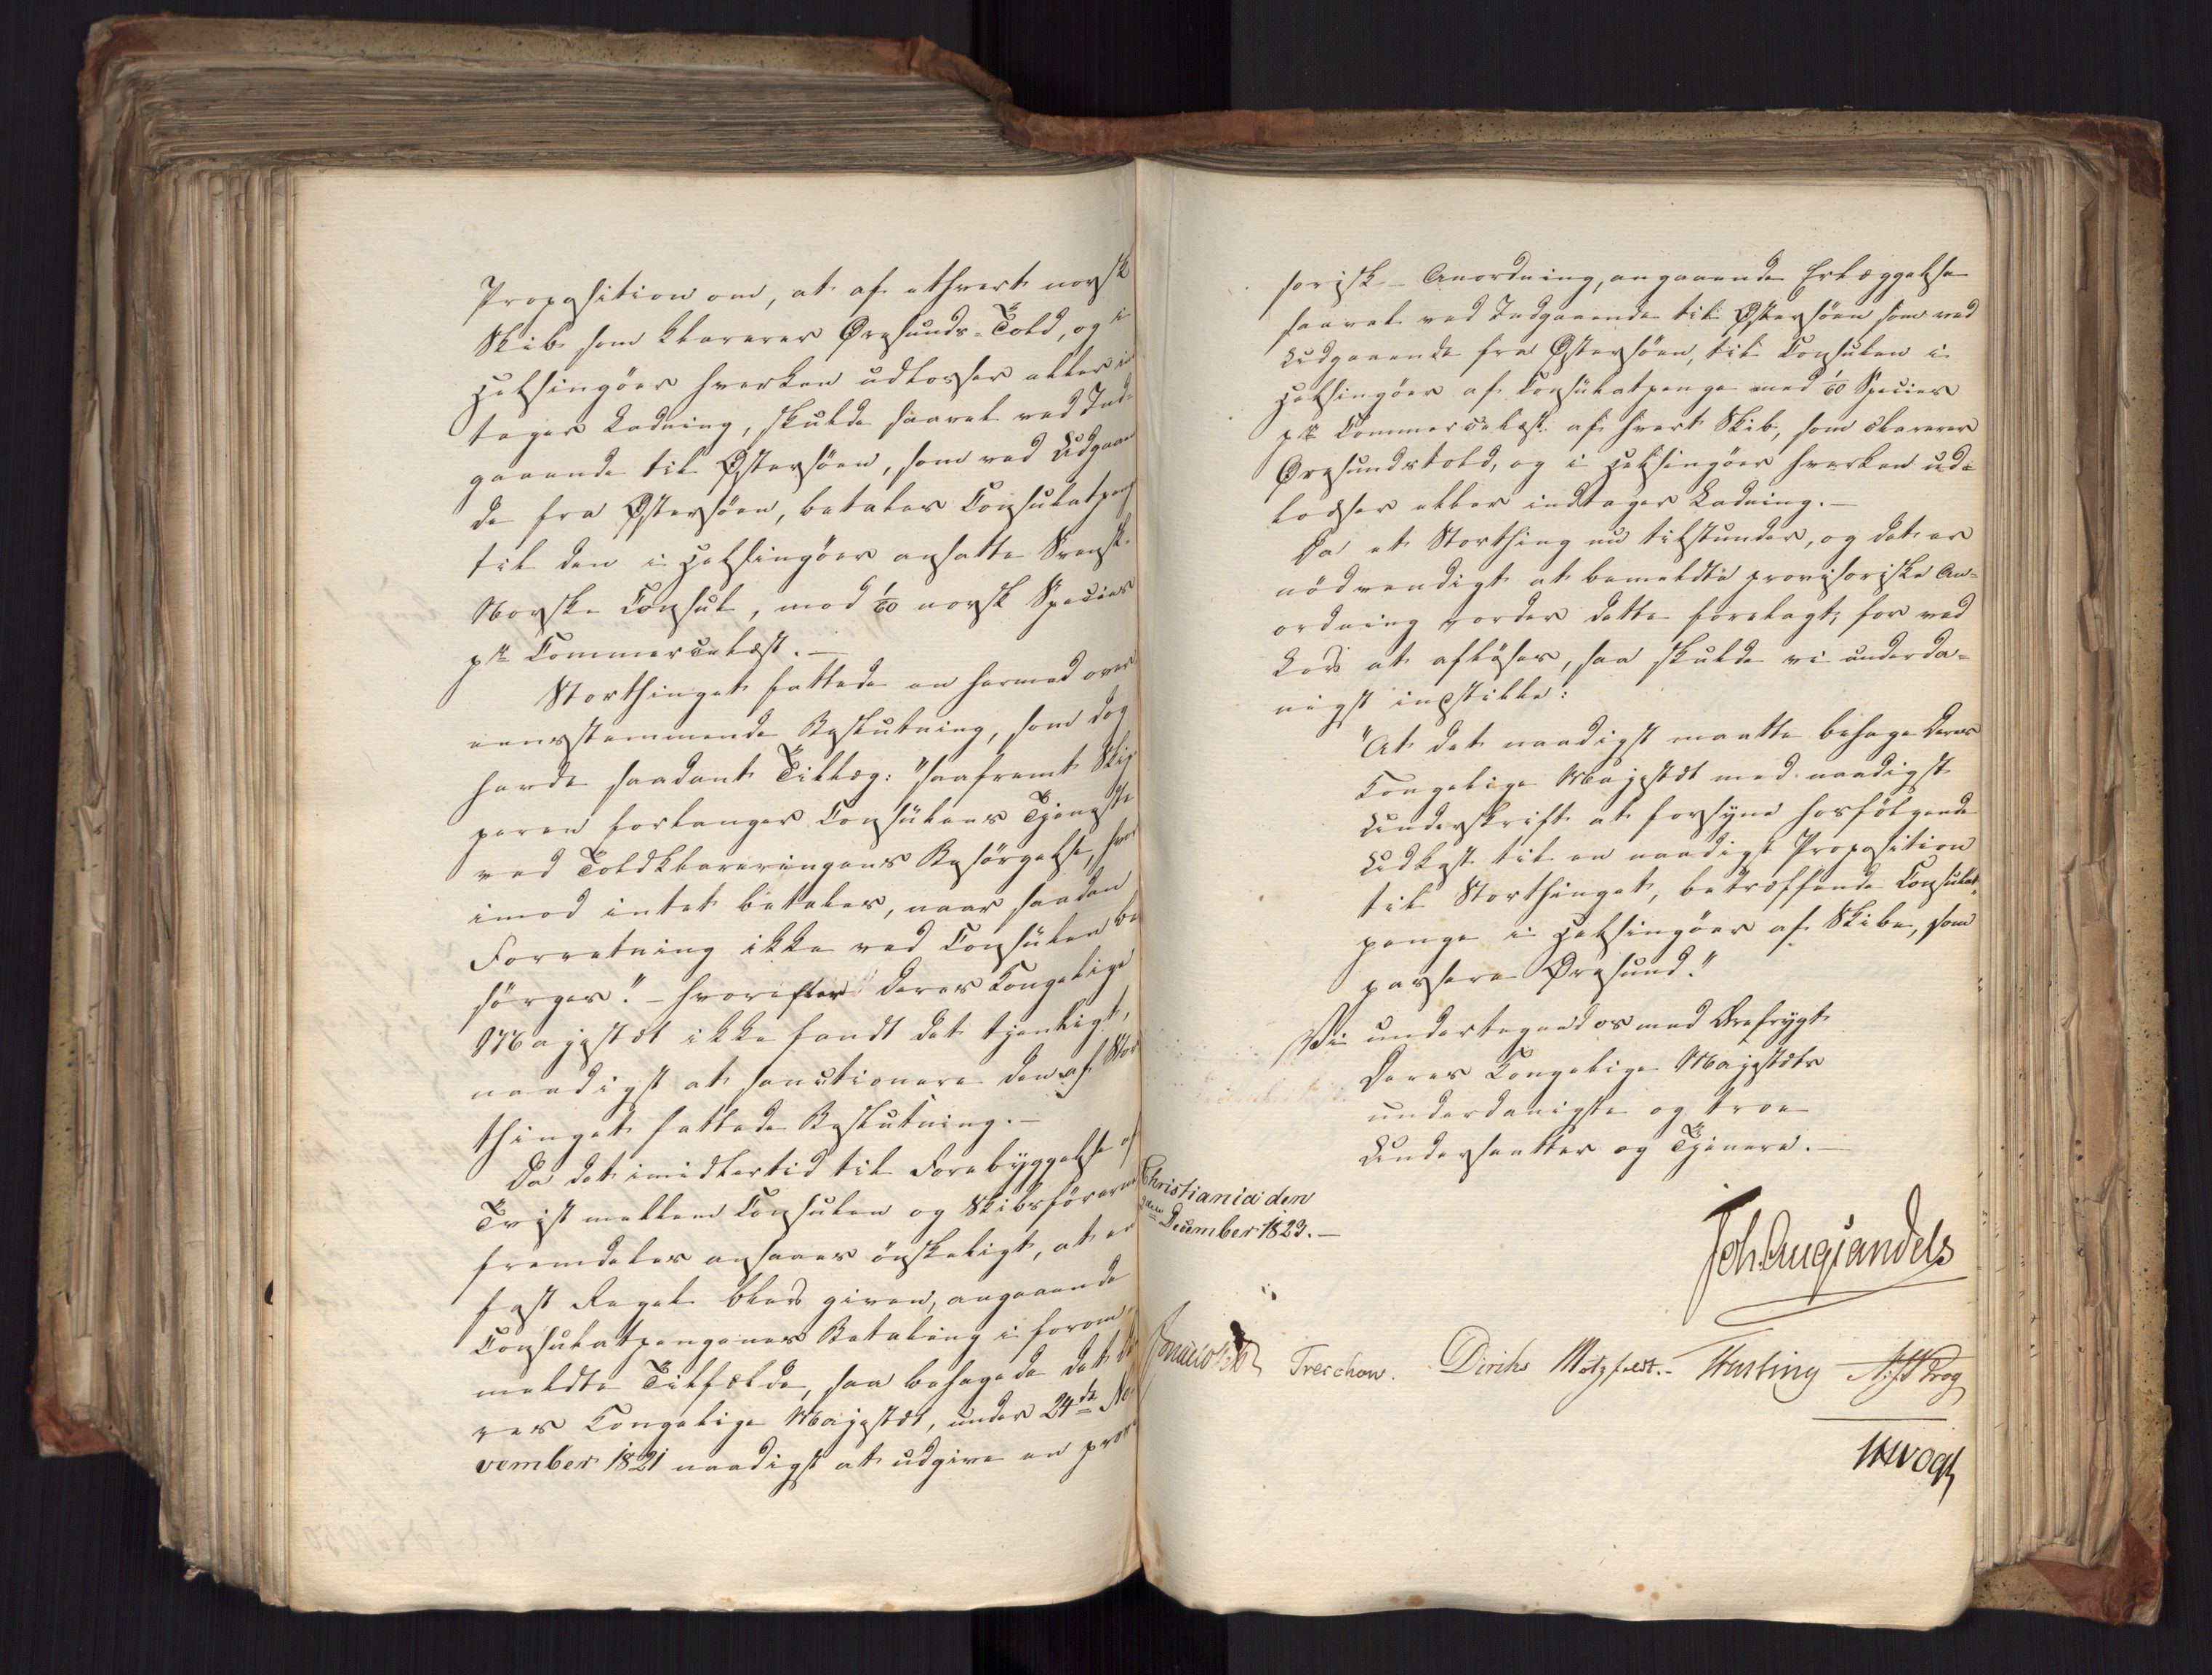 Proposition om, at af ethvert norsk
Skib som klarerer Øresunds-Told, og i
Helsingöer hverken udlosser eller in
tager Ladning, skulde saavel ved Ind-
gaaende til Östersöen, som ved Udgaaen
de fra Östersöen, betales Consulatpenge
til den i Helsingöer ansatte Svensk-
Norske Consul, med 1/60 norsk Species
pr Commercelæst. —
Storthinget fattede en hermed over
eensstemmende Beslutning, som dog
havde saadant Tillæg: "saafremt Skip
peren forlanger Consulens Tjeneste
ved Toldklareringens Besörgelse, hvor
imod intet betales, naar saadan
Forretning ikke ved Consulen be
sörges." — hvorefter Deres Kongelige
Majestæt ikke fandt det tjenligt,
naadigst at sanctionere den af Stor
thinget fattede Beslutning. —
Da det imidlertid til Forebyggelse af
Tvist mellem Consulen og Skibsförerne
fremdeles ansaaes önskeligt, at en
fast Regel blev given, angaaende
Consulatpengenes Betaling i forom
meldte Tilfælde, saa behagede det De
res Kongelige Majestæt, under 24de No
vember 1821 naadigst at udgive en provi
sorisk Anordning, angaaende Erlæggelse
saavel ved Indgaaende til Östersöen som ved
Udgaaende fra Östersöen, til Consulen i
Helsingöer af Consulatpenge med 1/60 Species
pr Commercelæst af hvert Skib, som clarerer
Öresundstold, og i Helsingöer hverken ud-
losser eller indtager Ladning. —
Da et Storthing nu tilstunder, og det er
nödvendigt at bemeldte provisoriske An-
ordning vorder dette forelagt, for ved
Lov at aflöses, saa skulde vi underda-
nigst indstille:
"At det naadigst maatte behage Deres
Kongelige Majestæt med naadigst
Underskrift at forsyne hosfölgende
Udkast til en naadigst Proposition
til Storthinget, betræffende Consulat-
penge i Helsingöer af Skibe, som
passere Øresund."
Vi undertegne os med Ærefrygt
Deres Kongelige Majestæts
underdanigste og troe
Undersaatter og Tjenere. —
Christiania den
December 1823. —
Joh. Aug. Sandels
Sommerhielm Treschow. Diriks Motzfeldt. — Fasting Krog
Vogt